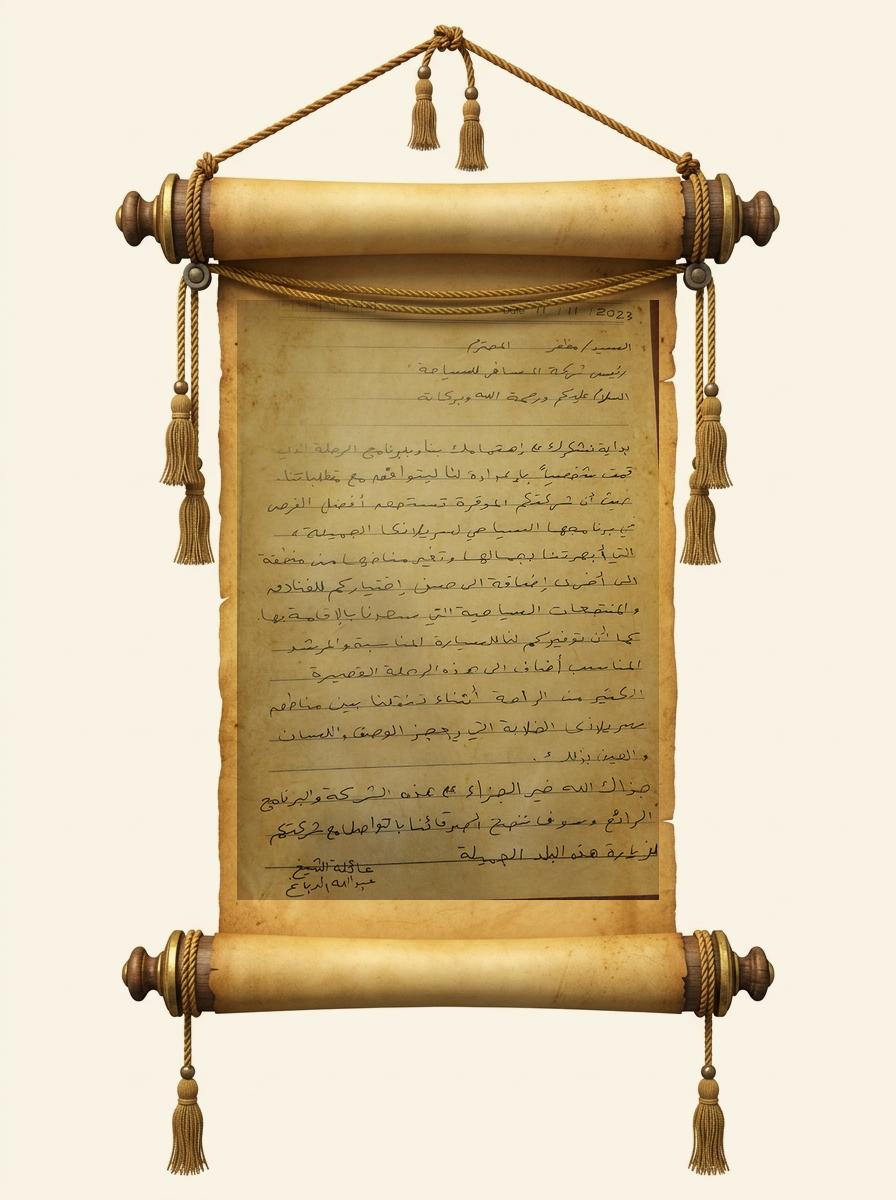 Date 11 / 11 / 2023
السيد/ مظفر المحترم
رئيس شركة المسافر للسياحة
السلام عليكم ورحمة الله وبركاتة
بداية نشكرك على إهتمامك بنا وببرنامج الرحلة الذي
قمت شخصياً بإعدادة لنا ليتوافق مع متطلباتنا.
حيث أن شركتكم الموقرة تستحق أفضل الفرص
في برنامجها السياحي لسريلانكا الجميلة،
التي أبهرتنا بجمالها وتغير مناخها من منطقة
الى أخرى إضافة الى حسن إختياركم للفنادق
والمنتجعات السياحية التي سعدنا بالإقامة بها.
كما أن توفيركم لنا للسيارة المناسبة والمرشد
المناسب أضاف الى هذه الرحلة القصيرة
الكثير من الراحة أثناء تنقلنا بين مناطق
سريلانكا الخلابة التي يعجز الوصف واللسان
والعين بذلك.
جزاك الله خير الجزاء على هذه الشركة والبرنامج
الرائع وسوف ننصح أصدقائنا بالتواصل مع شركتكم
لزيارة هذه البلد الجميلة
عائلة الشيخ
عبدالله الدباغ